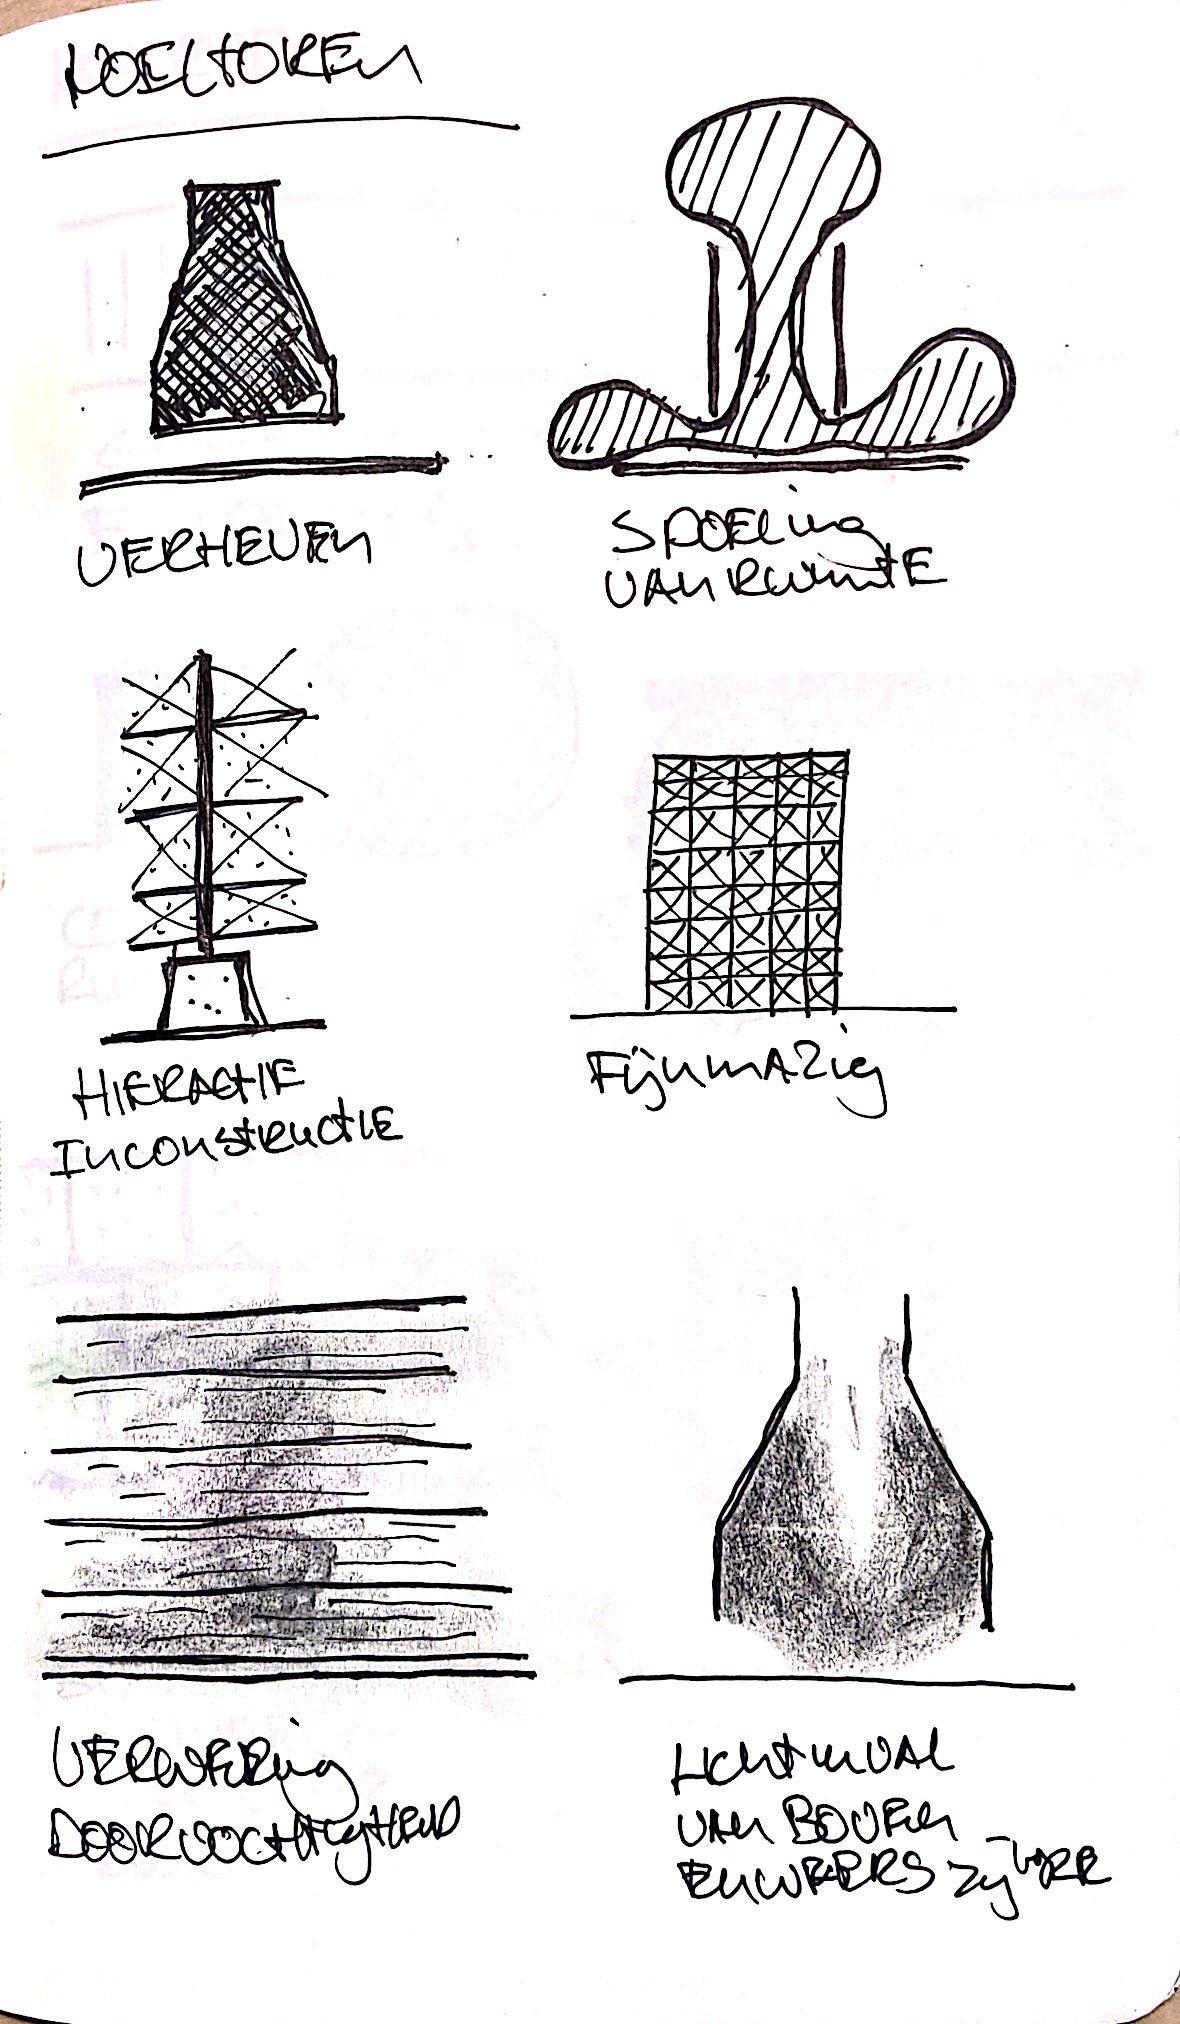 KOELTOREN
VERHEVEN
SPOELing
VAN RUIMTE
HIERACHIE
IN CONSTRUCTIE
FijnmAZig
VERWERing
DOOR VOCHTIGHEID
LICHTINVAL
VAN BOVEN